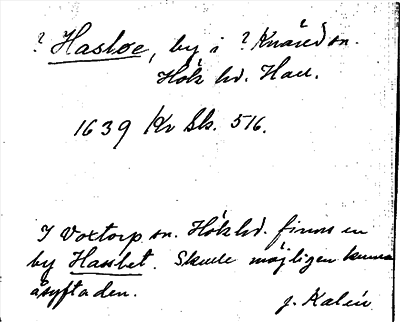 ? Hasloe, by i ? Knäred sn.
Hök hd. Hall.
1639 Kr Sk. 516.
I Voxtorp sn. Hök hd. finns en
by Hasslet. Skulle möjligen kunna
åsyfta den.
J. Kalén